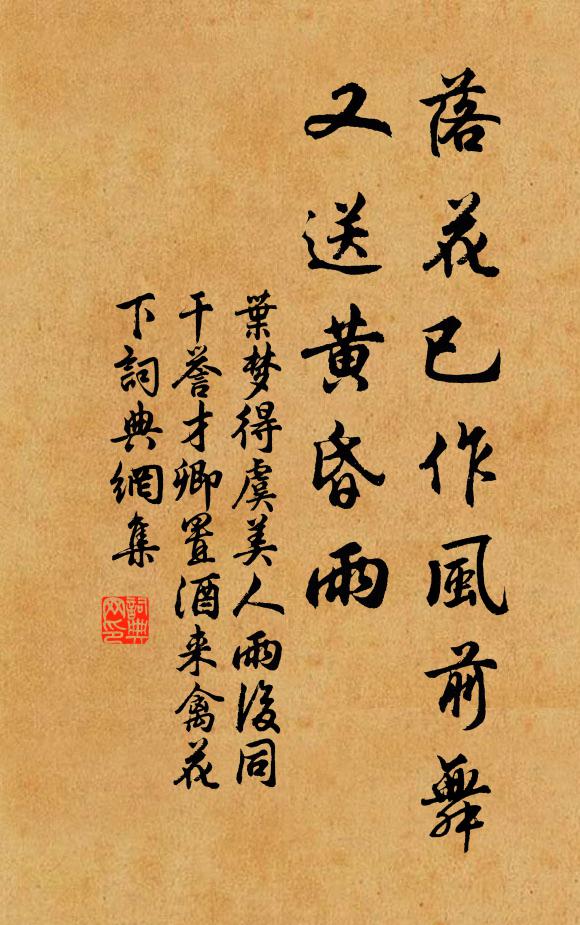 落花已作風前舞
又送黄昏雨
葉梦得虞美人雨後同
干譽才卿置酒来禽花
下詞典網集
詞典
网印